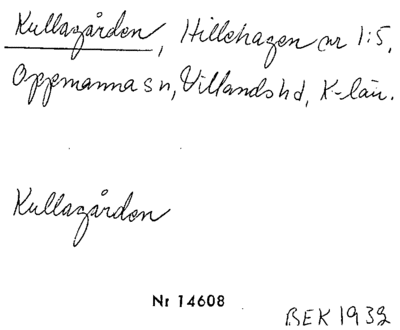 Kullagården, Hillehagen nr 1:5,
Oppmanna sn, Villands hd, K-län.
Kullagården
Nr 14608
BEK 1932